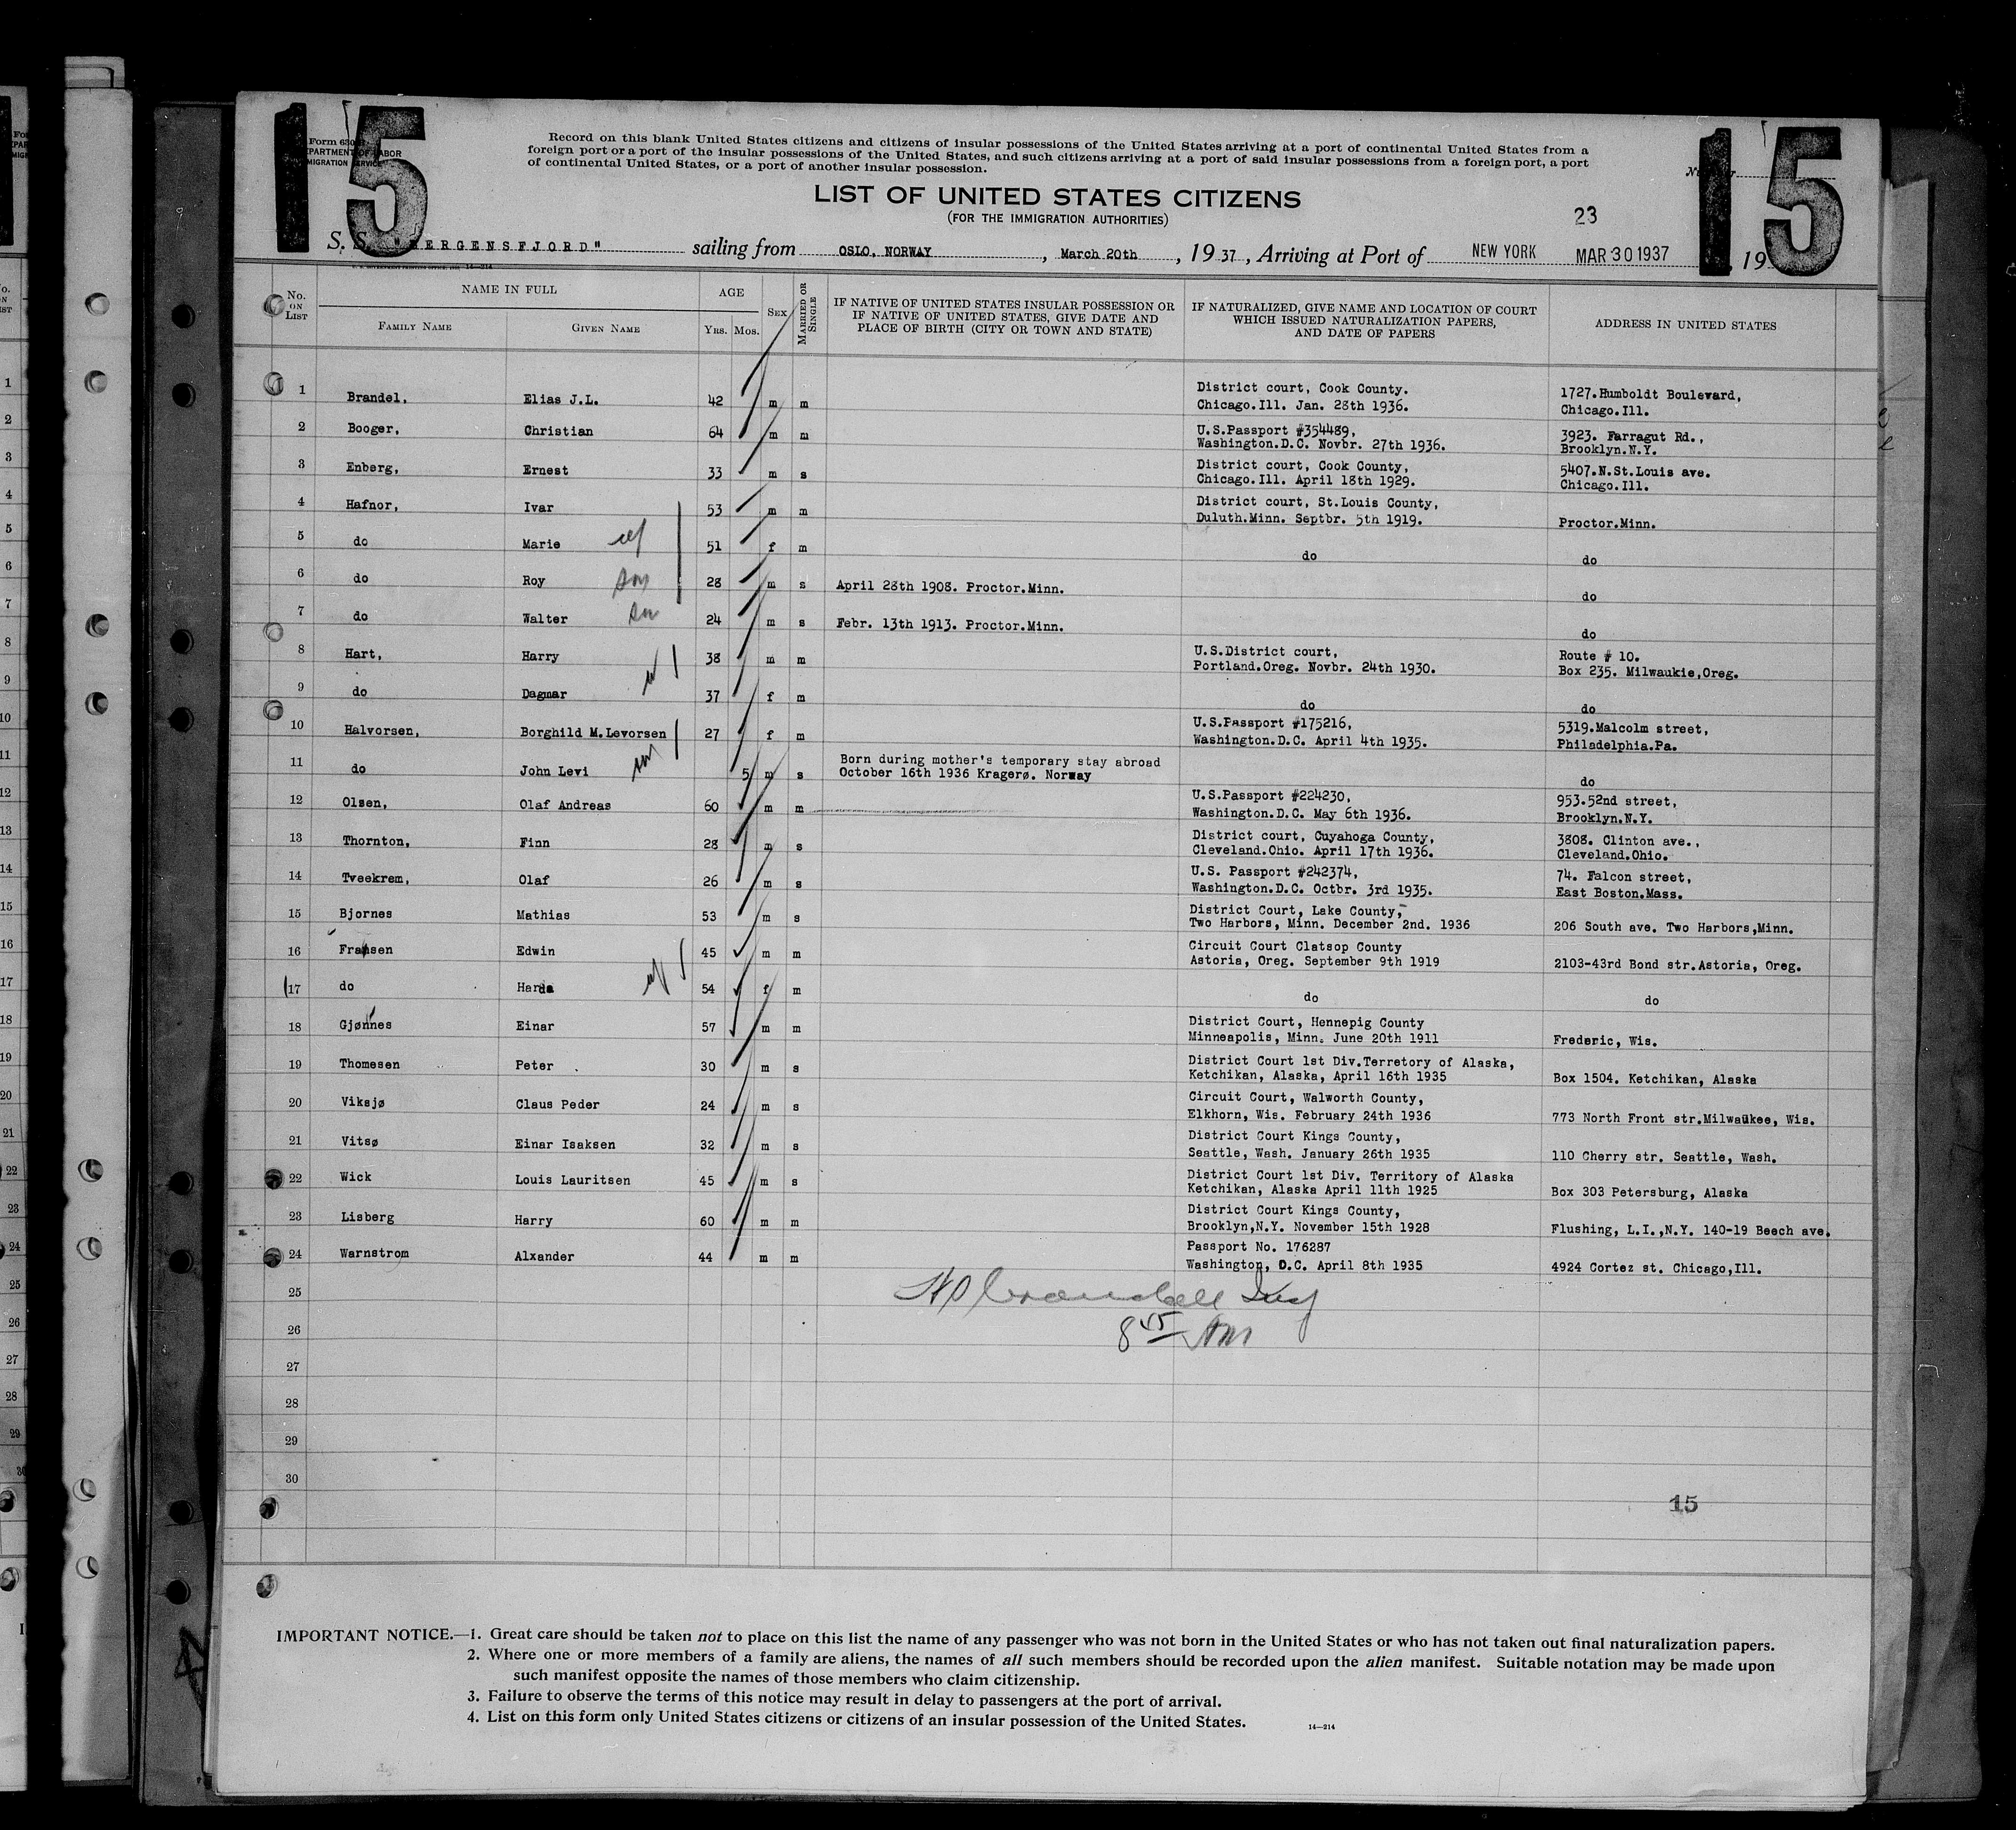 15
15
Form 630
DEPARTMENT OF LABOR
IMMIGRATION SERVICE
Record on this blank United States citizens and citizens of insular possessions of the United States arriving at a port of continental United States from a
foreign port or a port of the insular possessions of the United States, and such citizens arriving at a port of said insular possessions from a foreign port, a port
of continental United States, or a port of another insular possession.
LIST OF UNITED STATES CITIZENS
(FOR THE IMMIGRATION AUTHORITIES)
23
S. S. "BERGENSFJORD" sailing from OSLO, NORWAY, March 20th, 1937, Arriving at Port of NEW YORK MAR 30 1937, 19
14—214
No. ON LIST NAME IN FULL AGE SEX MARRIED OR SINGLE IF NATIVE OF UNITED STATES INSULAR POSSESSION OR IF NATIVE OF UNITED STATES, GIVE DATE AND PLACE OF BIRTH (CITY OR TOWN AND STATE) IF NATURALIZED, GIVE NAME AND LOCATION OF COURT WHICH ISSUED NATURALIZATION PAPERS, AND DATE OF PAPERS ADDRESS IN UNITED STATES
FAMILY NAME GIVEN NAME YRS. MOS.
1 Brandel, Elias J.L. 42 m m District court, Cook County. Chicago.Ill. Jan. 28th 1936. 1727.Humboldt Boulevard, Chicago.Ill.
2 Booger, Christian 64 m m U.S.Passport #354489, Washington.D.C. Novbr. 27th 1936. 3923. Farragut Rd., Brooklyn.N.Y.
3 Enberg, Ernest 33 m s District court, Cook County, Chicago.Ill. April 18th 1929. 5407.N.St.Louis ave. Chicago.Ill.
4 Hafnor, Ivar 53 m m District court, St.Louis County, Duluth.Minn. Septbr. 5th 1919. Proctor.Minn.
5 do Marie wf 51 f m do do
6 do Roy son 28 m s April 28th 1908. Proctor.Minn. do
7 do Walter son 24 m s Febr. 13th 1913. Proctor.Minn. do
8 Hart, Harry 38 m m U.S.District court, Portland.Oreg. Novbr. 24th 1930. Route # 10. Box 235. Milwaukie,Oreg.
9 do Dagmar 37 f m do do
10 Halvorsen, Borghild M.Levorsen 27 f m U.S.Passport #175216, Washington.D.C. April 4th 1935. 5319.Malcolm street, Philadelphia.Pa.
11 do John Levi son 5 m s Born during mother's temporary stay abroad October 16th 1936 Kragerø. Norway do
12 Olsen, Olaf Andreas 60 m m U.S.Passport #224230, Washington.D.C. May 6th 1936. 953.52nd street, Brooklyn.N.Y.
13 Thornton, Finn 28 m s District court, Cuyahoga County, Cleveland.Ohio. April 17th 1936. 3808. Clinton ave., Cleveland.Ohio.
14 Tveekrem, Olaf 26 m s U.S. Passport #242374, Washington.D.C. Octbr. 3rd 1935. 74. Falcon street, East Boston.Mass.
15 Bjornes Mathias 53 m s District Court, Lake County, Two Harbors, Minn. December 2nd. 1936 206 South ave. Two Harbors,Minn.
16 Fransen Edwin 45 m m Circuit Court Clatsop County Astoria, Oreg. September 9th 1919 2103-43rd Bond str.Astoria, Oreg.
17 do Harda wf 54 f m do do
18 Gjønnes Einar 57 m m District Court, Hennepig County Minneapolis, Minn. June 20th 1911 Frederic, Wis.
19 Thomesen Peter 30 m s District Court 1st Div.Terretory of Alaska, Ketchikan, Alaska, April 16th 1935 Box 1504. Ketchikan, Alaska
20 Viksjø Claus Peder 24 m s Circuit Court, Walworth County, Elkhorn, Wis. February 24th 1936 773 North Front str.Milwaukee, Wis.
21 Vitsø Einar Isaksen 32 m s District Court Kings County, Seattle, Wash. January 26th 1935 110 Cherry str. Seattle, Wash.
22 Wick Louis Lauritsen 45 m s District Court 1st Div. Territory of Alaska Ketchikan, Alaska April 11th 1925 Box 303 Petersburg, Alaska
23 Lisberg Harry 60 m m District Court Kings County, Brooklyn,N.Y. November 15th 1928 Flushing, L.I.,N.Y. 140-19 Beech ave.
24 Warnstrom Alxander 44 m m Passport No. 176287 Washington, D.C. April 8th 1935 4924 Cortez st. Chicago,Ill.
25
26 8 45 AM
27
28
29
30
15
IMPORTANT NOTICE.—1. Great care should be taken not to place on this list the name of any passenger who was not born in the United States or who has not taken out final naturalization papers.
2. Where one or more members of a family are aliens, the names of all such members should be recorded upon the alien manifest. Suitable notation may be made upon
such manifest opposite the names of those members who claim citizenship.
3. Failure to observe the terms of this notice may result in delay to passengers at the port of arrival.
4. List on this form only United States citizens or citizens of an insular possession of the United States.
14—214